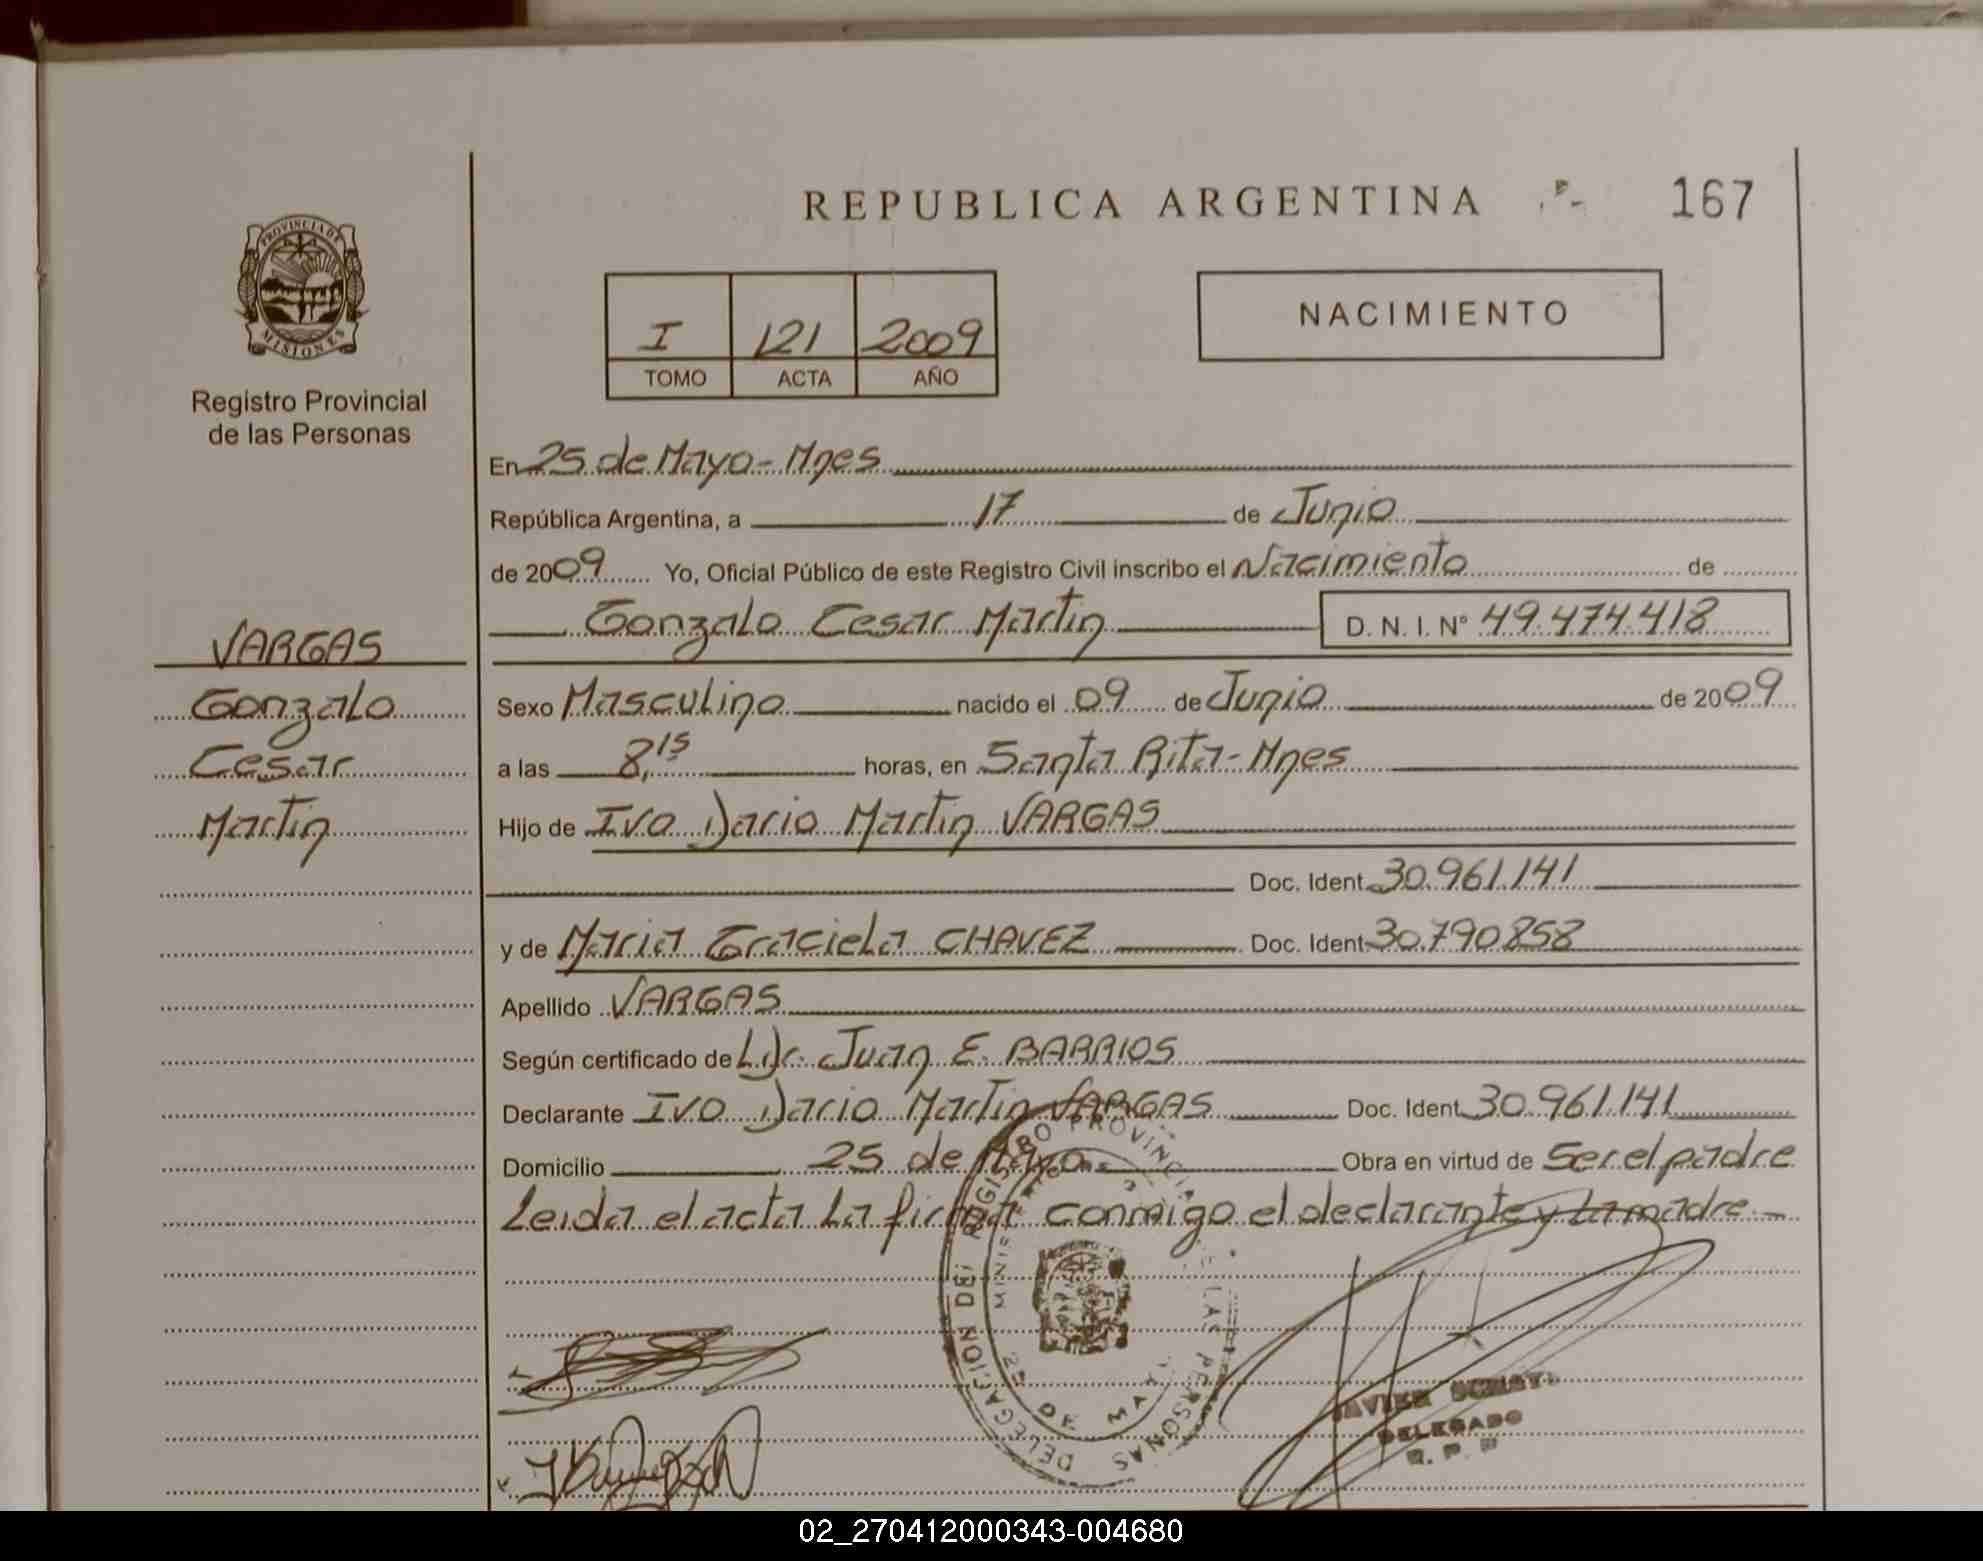 REPUBLICA ARGENTINA
167
PROVINCIA DE
MISIONES
Registro Provincial
de las Personas
I 121 2009
TOMO ACTA AÑO
NACIMIENTO
En 25 de Mayo - Mnes
República Argentina, a 17 de Junio
de 2009 Yo, Oficial Público de este Registro Civil inscribo el Nacimiento de
Gonzalo Cesar Martin D. N. I. N° 49.474.418
VARGAS
Gonzalo
Cesar
Martin
Sexo Masculino nacido el 09 de Junio de 2009
a las 8,15 horas, en Santa Rita - Mnes
Hijo de Ivo Dario Martin VARGAS
Doc. Ident. 30.961.141
y de Maria Graciela CHAVEZ Doc. Ident 30.790.858
Apellido VARGAS
Según certificado de Juan E. BARRIOS
Declarante Ivo Dario Martin VARGAS Doc. Ident. 30.961.141
Domicilio 25 de Mayo Obra en virtud de Ser el padre
Leida el acta La firma conmigo el declarante y La madre -
DELEGACION DEL REGISTRO PROVINCIAL DE LAS PERSONAS
25 DE MAYO
JAVIER
DELEGADO
R. P. P
02_270412000343-004680